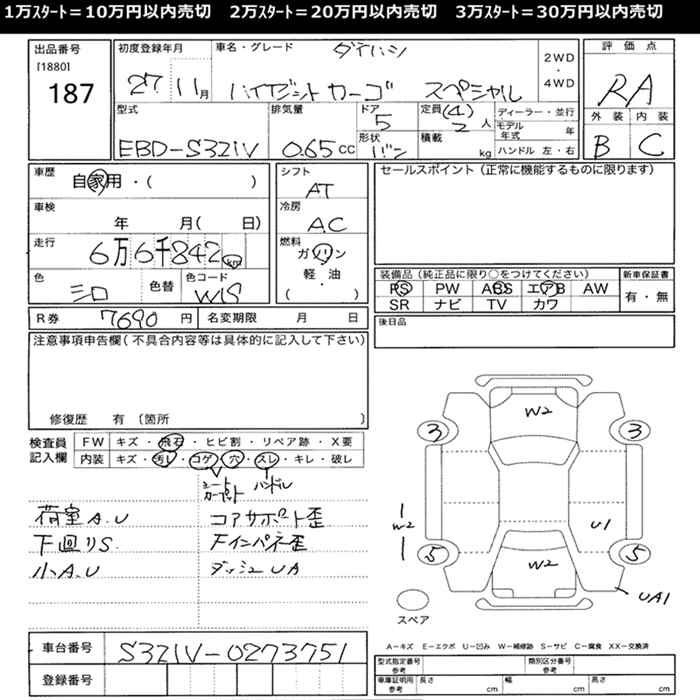 1万ｽﾀｰﾄ＝10万円以内売切　2万ｽﾀｰﾄ＝20万円以内売切　3万ｽﾀｰﾄ＝30万円以内売切
出品番号
[1880]
187
初度登録年月
27 11月
車名・グレード
ダイハツ
ハイゼット カーゴ スペシャル
2WD
・
4WD
評価点
RA
外装 内装
B C
型式
EBD-S321V
排気量
0.65cc
ドア
5
形状
バン
定員 (4)
2人
積載
kg
ディーラー・並行
モデル年式 年
ハンドル 左・右
車歴
自家用・( )
車検
年 月( 日)
走行
6万6千842km
色
シロ
色替
色コード
W19
シフト
AT
冷房
A.C
燃料
ガソリン
軽・油
( )
セールスポイント(正常に機能するものに限ります)
装備品(純正品に限り○をつけてください)
PS PW ABS エアB AW
SR ナビ TV カワ
新車保証書
有・無
R券 7690円
名変期限 月 日
後日品
注意事項申告欄(不具合内容等は具体的に記入して下さい)
修復歴 有(箇所 )
検査員
記入欄
FW キズ・飛石・ヒビ割・リペア跡・X要
内装 キズ・汚レ・コゲ・穴・スレ・キレ・破レ
シート
カーペット
ハンドル
荷室A.U
コアサポート歪
下回りS.
Fインパネ歪
小A.U
ダッシュUA
W2
3 3
W2
U1
5 5
W2
UA1
スペア
A－キズ E－エクボ U－凹み W－補修跡 S－サビ C－腐食 XX－交換済
車台番号
S321V-0273751
登録番号
型式指定番号
参考
類別区分番号
参考
車庫証明用
参考
長さ cm
幅 cm
高さ cm